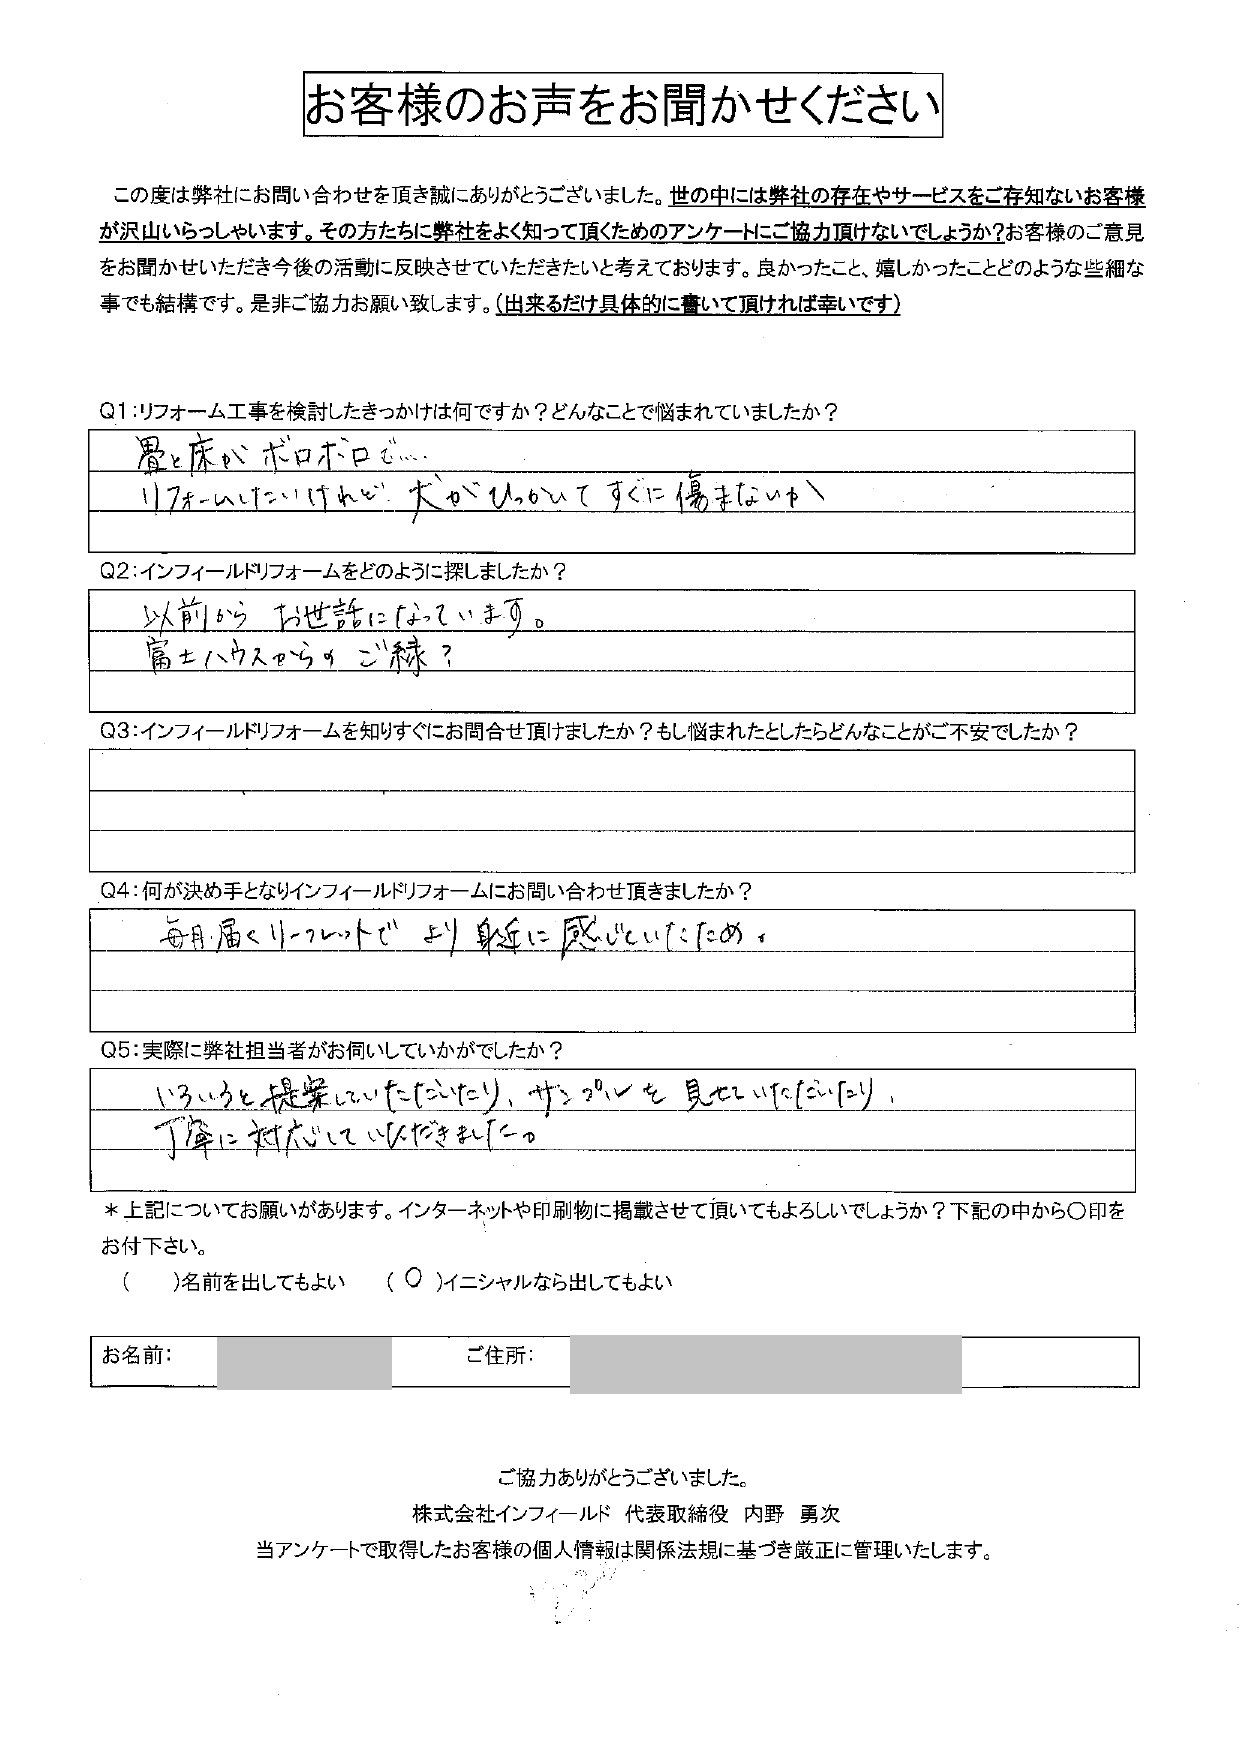 お客様のお声をお聞かせください
この度は弊社にお問い合わせを頂き誠にありがとうございました。世の中には弊社の存在やサービスをご存知ないお客様
が沢山いらっしゃいます。その方たちに弊社をよく知って頂くためのアンケートにご協力頂けないでしょうか?お客様のご意見
をお聞かせいただき今後の活動に反映させていただきたいと考えております。良かったこと、嬉しかったことどのような些細な
事でも結構です。是非ご協力お願い致します。(出来るだけ具体的に書いて頂ければ幸いです)
Q1:リフォーム工事を検討したきっかけは何ですか?どんなことで悩まれていましたか?
畳と床がボロボロで…
リフォームしたいけれど犬がひっかいてすぐに傷まないか
Q2:インフィールドリフォームをどのように探しましたか?
以前からお世話になっています。
富士ハウスからのご縁?
Q3:インフィールドリフォームを知りすぐにお問合せ頂けましたか?もし悩まれたとしたらどんなことがご不安でしたか?
Q4:何が決め手となりインフィールドリフォームにお問い合わせ頂きましたか?
毎月届くリーフレットでより身近に感じていたため。
Q5:実際に弊社担当者がお伺いしていかがでしたか?
いろいろと提案していただいたり、サンプルを見せていただいたり、
丁寧に対応していただきました。
*上記についてお願いがあります。インターネットや印刷物に掲載させて頂いてもよろしいでしょうか?下記の中から〇印を
お付下さい。
(　　)名前を出してもよい　(○)イニシャルなら出してもよい
お名前:　ご住所:
ご協力ありがとうございました。
株式会社インフィールド 代表取締役 内野 勇次
当アンケートで取得したお客様の個人情報は関係法規に基づき厳正に管理いたします。